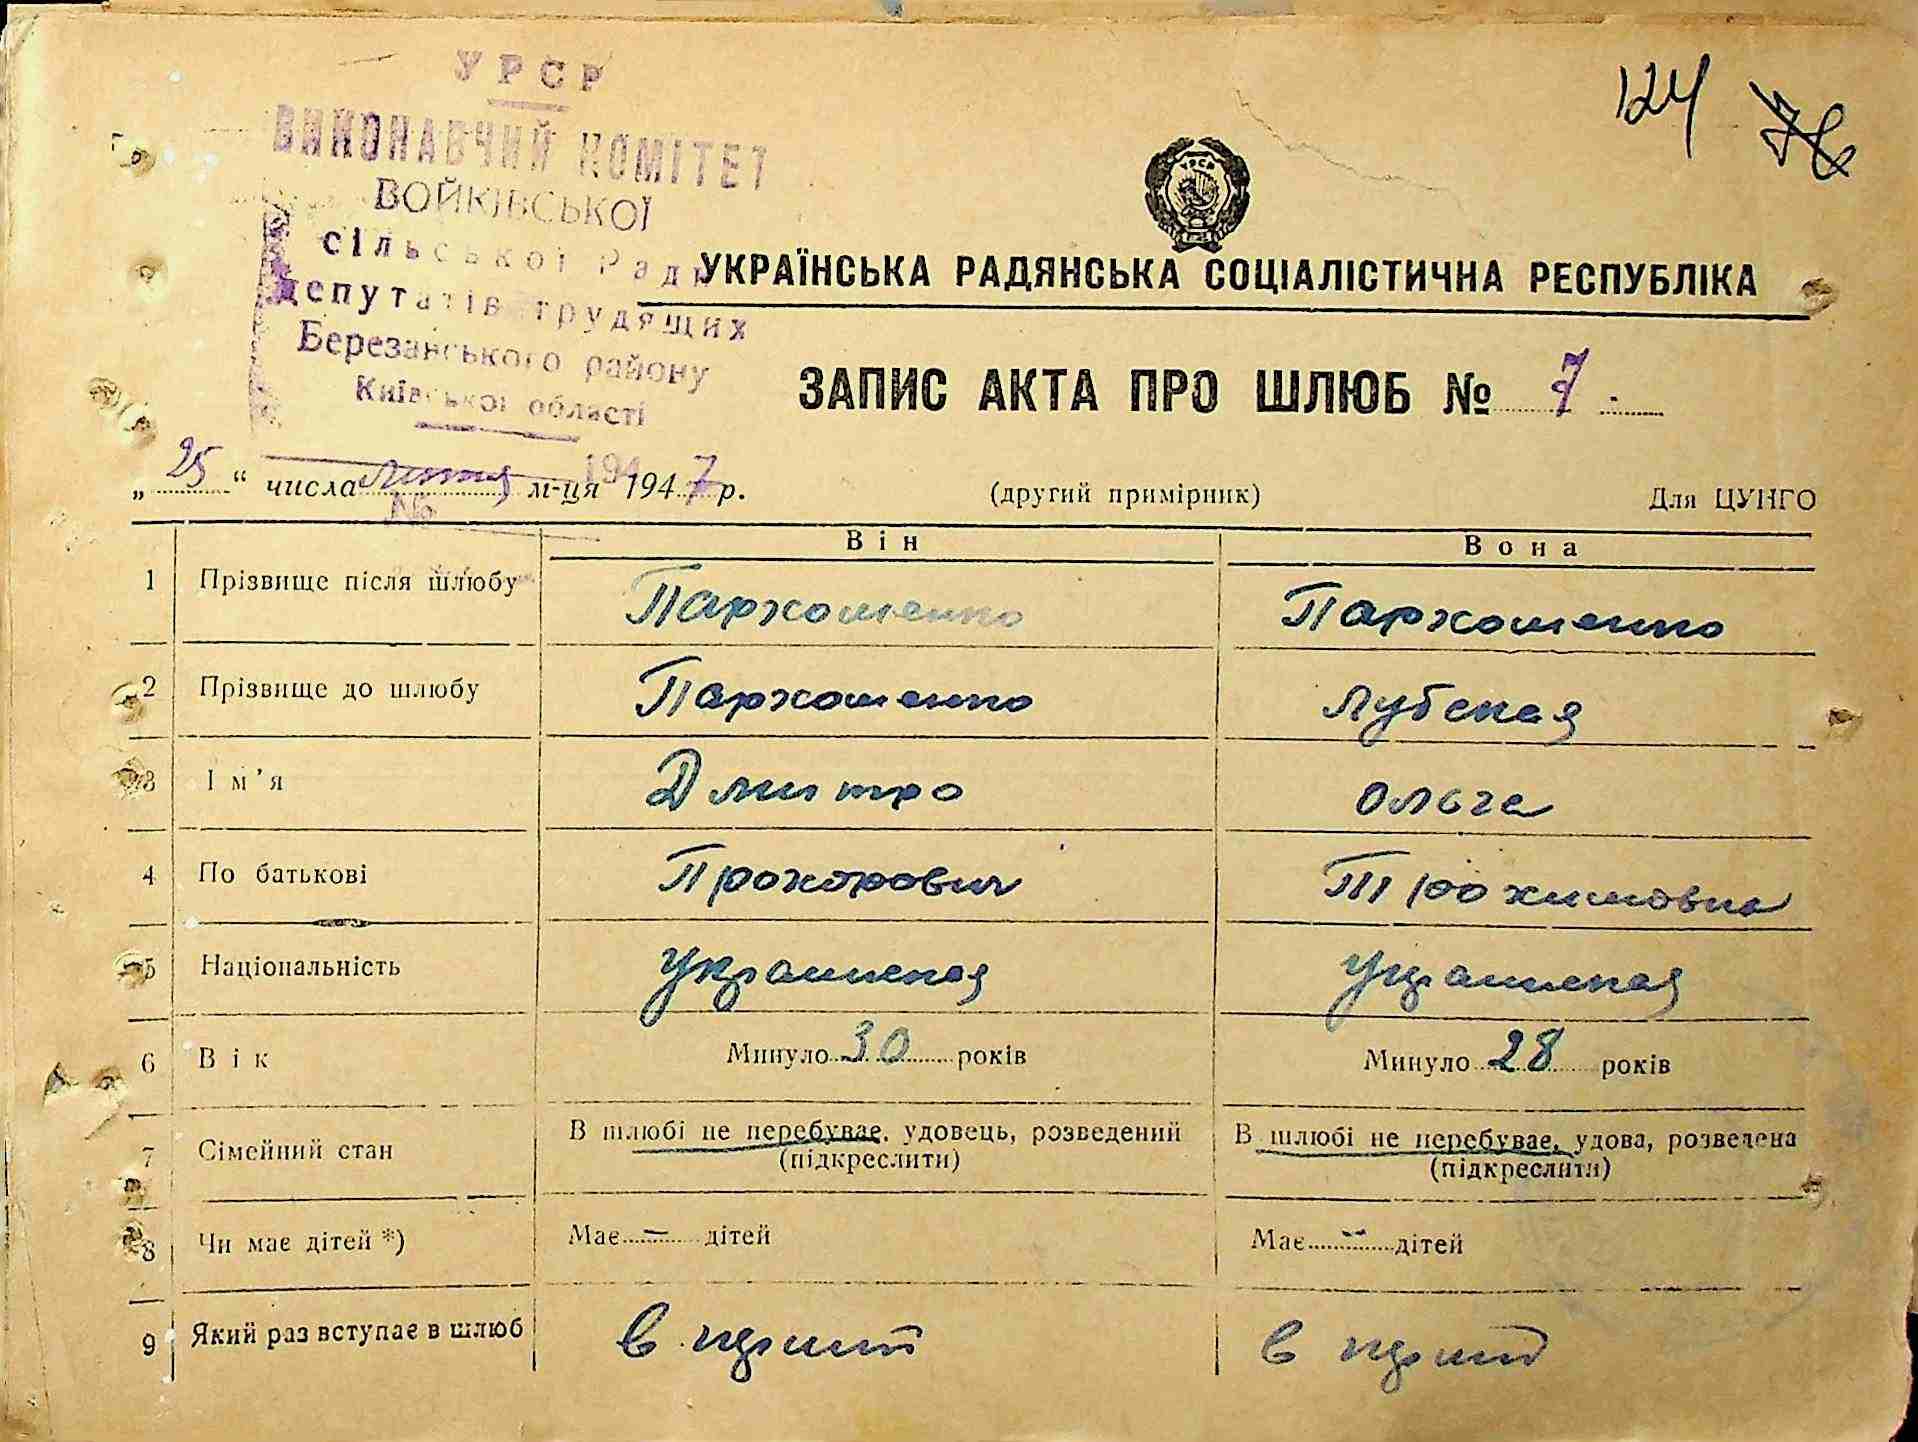 124 76
УРСР
ВИКОНАВЧИЙ КОМІТЕТ
ВОЙКІВСЬКОЇ
сільської Ради
депутатів трудящих
Березанського району
Київської області
194
№
УРСР
УКРАЇНСЬКА РАДЯНСЬКА СОЦІАЛІСТИЧНА РЕСПУБЛІКА
ЗАПИС АКТА ПРО ШЛЮБ № 7
„25“ числа м-ця 1947 р. (другий примірник) Для ЦУНГО
Він Вона
1 Прізвище після шлюбу Пархоменко Пархоменко
2 Прізвище до шлюбу Пархоменко Лубская
3 Ім'я Дмитро Ольга
4 По батькові Прохорович
5 Національність
6 Вік Минуло 30 років Минуло 28 років
7 Сімейний стан В шлюбі не перебуває, удовець, розведений В шлюбі не перебуває, удова, розведена
(підкреслити) (підкреслити)
8 Чи має дітей *) Має — дітей Має — дітей
9 Який раз вступає в шлюб в в